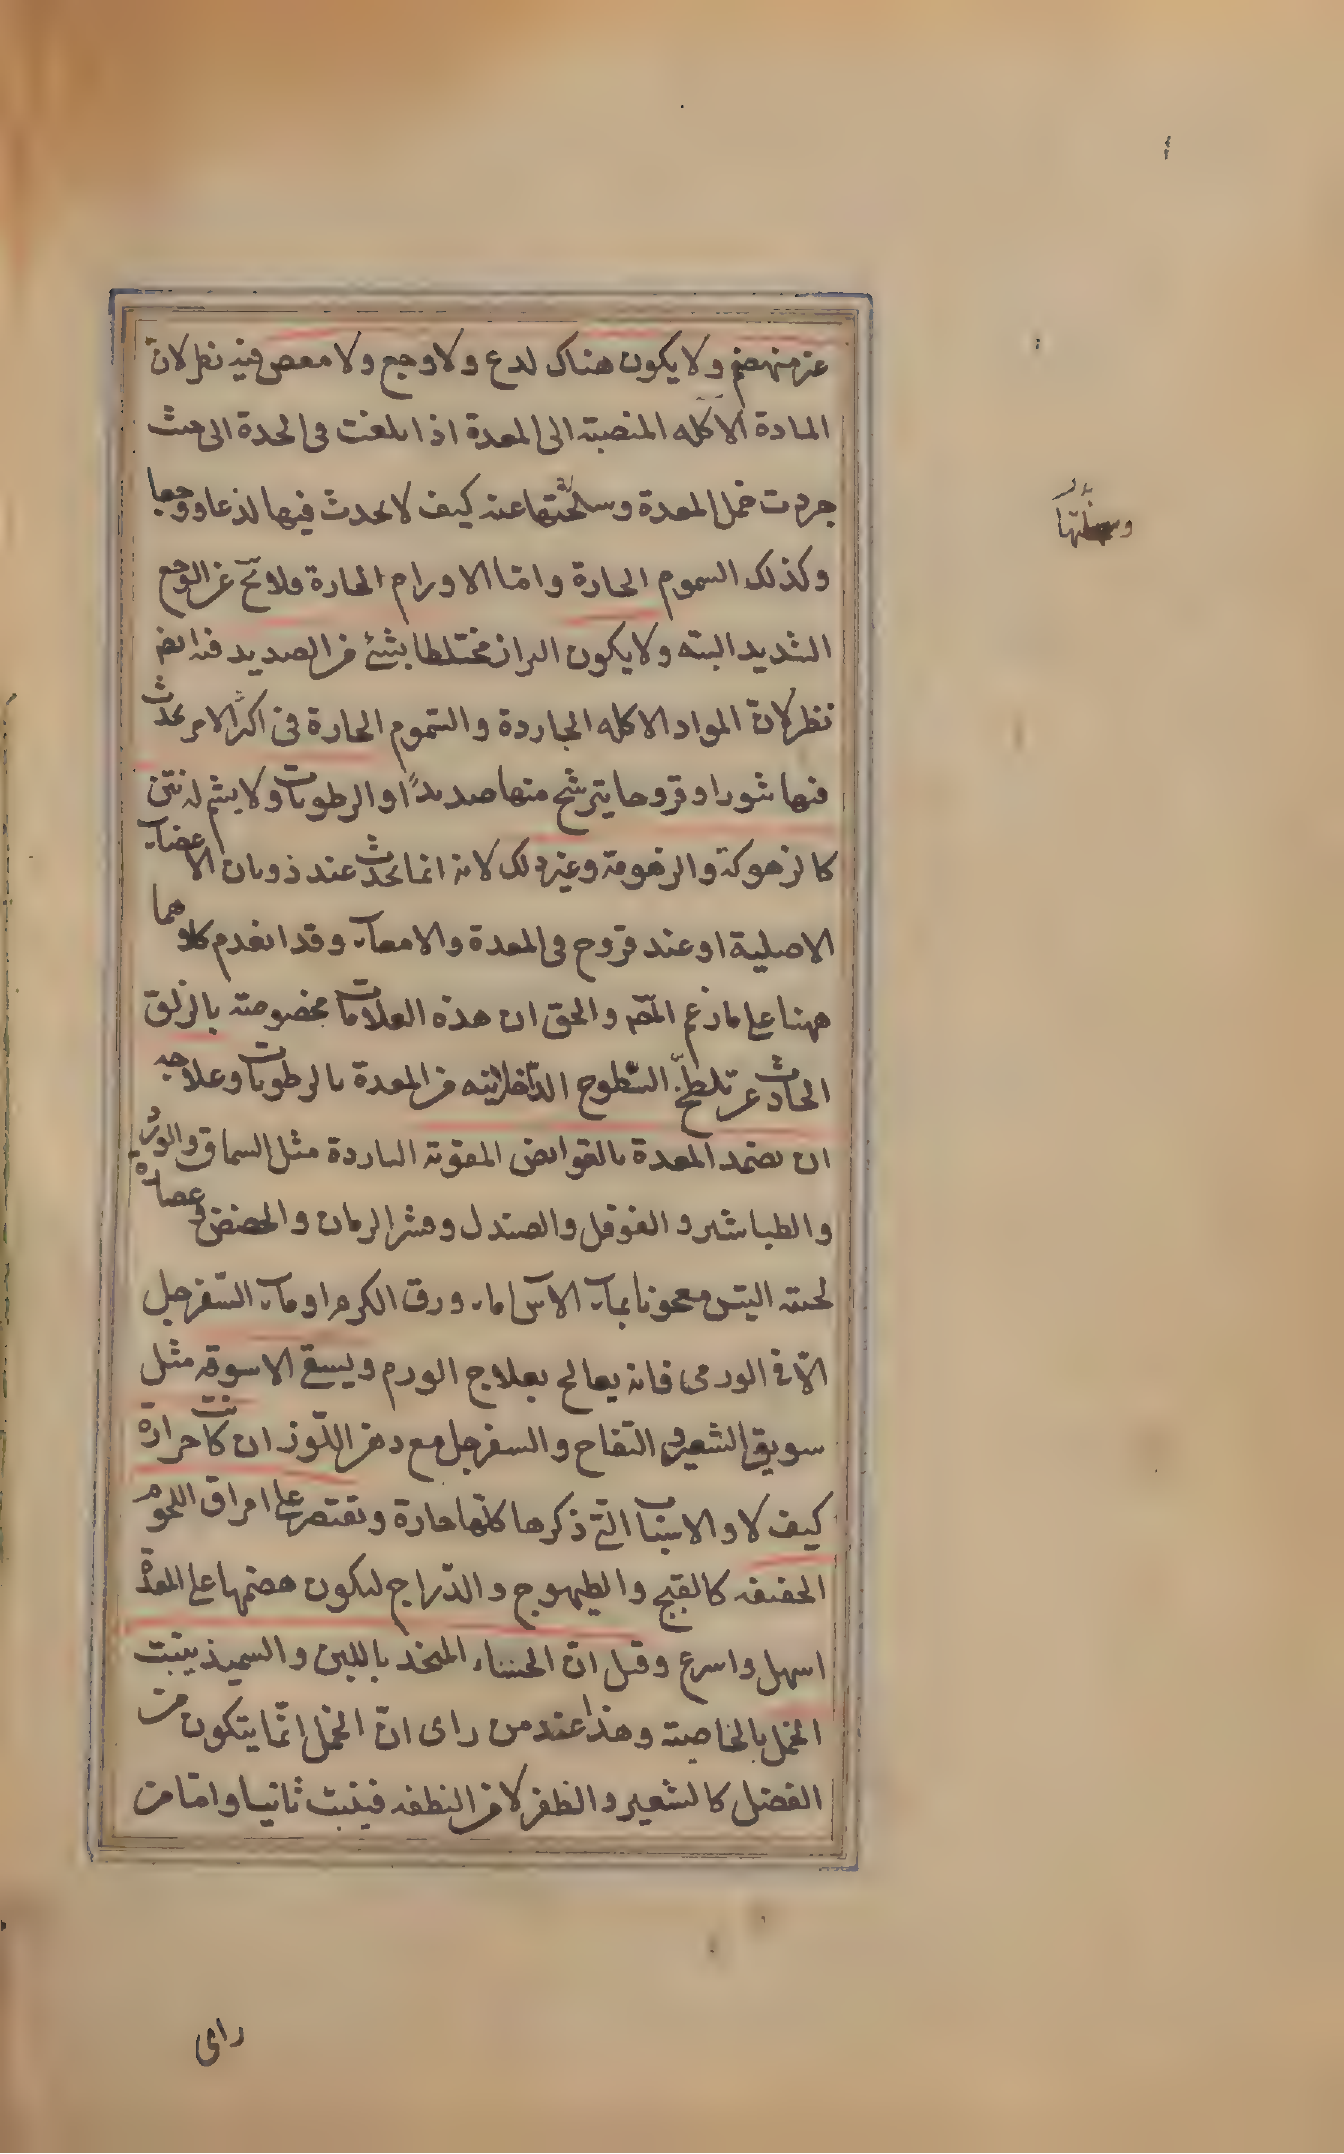 غير منهضم ولا يكون هناك لدع ولا وجع ولا مغص فيه نظر لانّ
المادة الاكله المنصبة الى المعدة اذا بلغت فى الحدة الى حيث
جردت خمل المعدة وسلختها عنه كيف لا يحدث فيها لذعا ووجعا
وكذلك السموم الحارة وامّا الاورام الحارة فلا تخ عن الوجع
الشديد البته ولا يكون البراز مختلطا بشئ من الصديد فيه ايضا
نظر لانّ المواد الاكله الجاردة والسّموم الحارة فى اكثر الامر يحدث
فيها بثورا وقروحا يترشح منها صديدًا والرطوبات ولا يشم له نتن
كالزهوكة والزهومة وغير ذلك لانه انما يحدث عند ذوبان الاعضاء
الاصلية او عند قروح فى المعدة والامعاء وقد انعدم كلاهما
ههنا على ما زعم المص والحق ان هذه العلامات مخصوصة بالزلق
الحادث عن تلطّخ السّطوح الدّاخلانيه من المعدة بالرطوبات وعلاجه
ان يضمد المعدة بالقوابض المقوية الباردة مثل السماق والورد
والطباشير والفوفل والصندل وقشر الرمان والحضض وعصارة
لحية التيس معجونا بماء الآس او ماء ورق الكرم او ماء السّفرجل
الّا فى الورمى فانه يعالج بعلاج الورم ويسقى الاسوقه مثل
سويق الشعير والتفاح والسفرجل مع دهن اللّوز ان كانت حرارة
كيف لا والاسباب التى ذكرها كلّها حارة ويقتصر على امراق اللحوم
الخفيفه كالقبج والطيهوج والدّراج ليكون هضمها على المعدة
اسهل واسرع وقيل انّ الحساء المتخذ باللبن والسميذ ينبت
الخمل بالخاصية وهذا عند من راى انّ الخمل انّما يتكون من
الفضل كالشعير والظفر لا من النطفه فينبت ثانيا وامّا من
راى